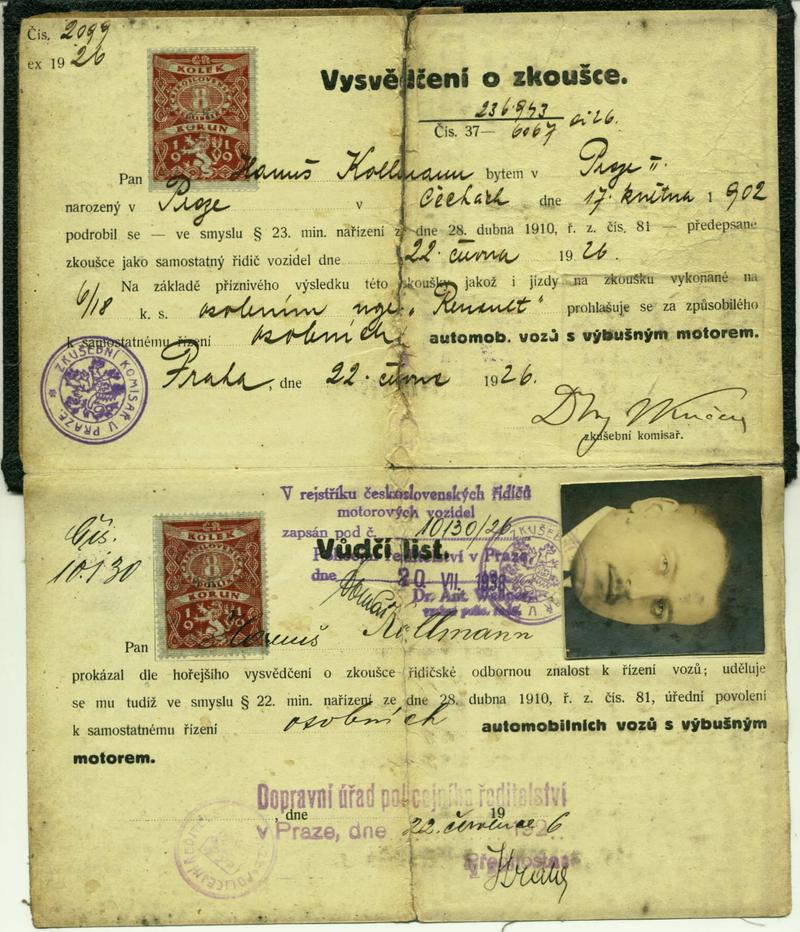 Čís. 2099
ex 1926
ČR
KOLEK
ČESKOSLOVENSKÁ
8
REPUBLIKA
KORUN
1919
Vysvědčení o zkoušce.
236.943
Čís. 37— 6067 ai 26.
Pan Hanuš Kollmann bytem v Praze II.
narozený v Praze v Čechách dne 17. května 1902
podrobil se — ve smyslu § 23. min. nařízení z dne 28. dubna 1910, ř. z. čís. 81 — předepsané
zkoušce jako samostatný řidič vozidel dne 22. června 1926.
Na základě příznivého výsledku této zkoušky jakož i jízdy na zkoušku vykonané na
6/18 k. s. osobním „Renault“ prohlašuje se za způsobilého
k samostatnému řízení osobních automob. vozů s výbušným motorem.
Praha, dne 22. června 1926.
zkušební komisař.
ZKUŠEBNÍ KOMISAŘ V PRAZE
V rejstříku československých řidičů
motorových vozidel
zapsán pod č. 10130/26
Policejní ředitelství v Praze
dne 20 VII. 1936
Dr. Ant.
Čís.
10.130
ČR
KOLEK
ČESKOSLOVENSKÁ
8
REPUBLIKA
KORUN
1919
Vůdčí list.
ZKUŠEBNÍ KOMISAŘ V PRAZE
Pan Hanuš Kollmann
prokázal dle hořejšího vysvědčení o zkoušce řidičské odbornou znalost k řízení vozů; uděluje
se mu tudíž ve smyslu § 22. min. nařízení ze dne 28. dubna 1910, ř. z. čís. 81, úřední povolení
k samostatnému řízení osobních automobilních vozů s výbušným
motorem.
Dopravní úřad policejního ředitelství
, dne 19
v Praze, dne 22. července 1926
Přednosta